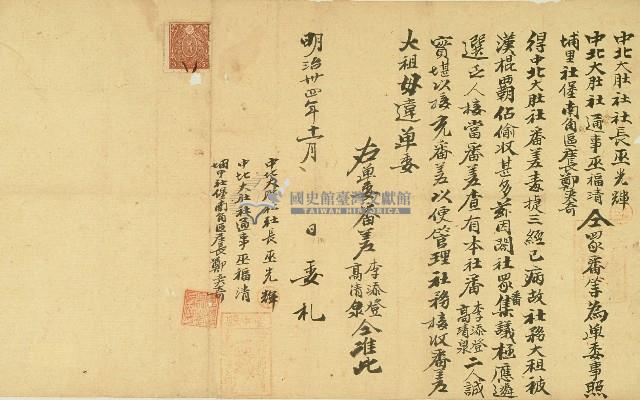 中北大肚社社長巫光輝
中北大肚社通事巫福清仝眾番等為單委事照
埔里社堡南角區庄長鄭奕奇
得中北大肚社番差毒振三經已病故社務大租被
漢棍霸佔偷收甚多茲因閤社眾番集議極應遴
選乏人接當番差查有本社番李添登高清泉二人誠
實堪以接充番差以便管理社務接收番差
大租毋違單委
右單委番差李添登高清泉仝准此
明治卅四年十一月 日 委札
中北大肚社社長巫光輝
中北大肚社通事巫福清
埔里社堡南角區庄長鄭奕奇
國史館臺灣文獻館
TAIWAN HISTORICA